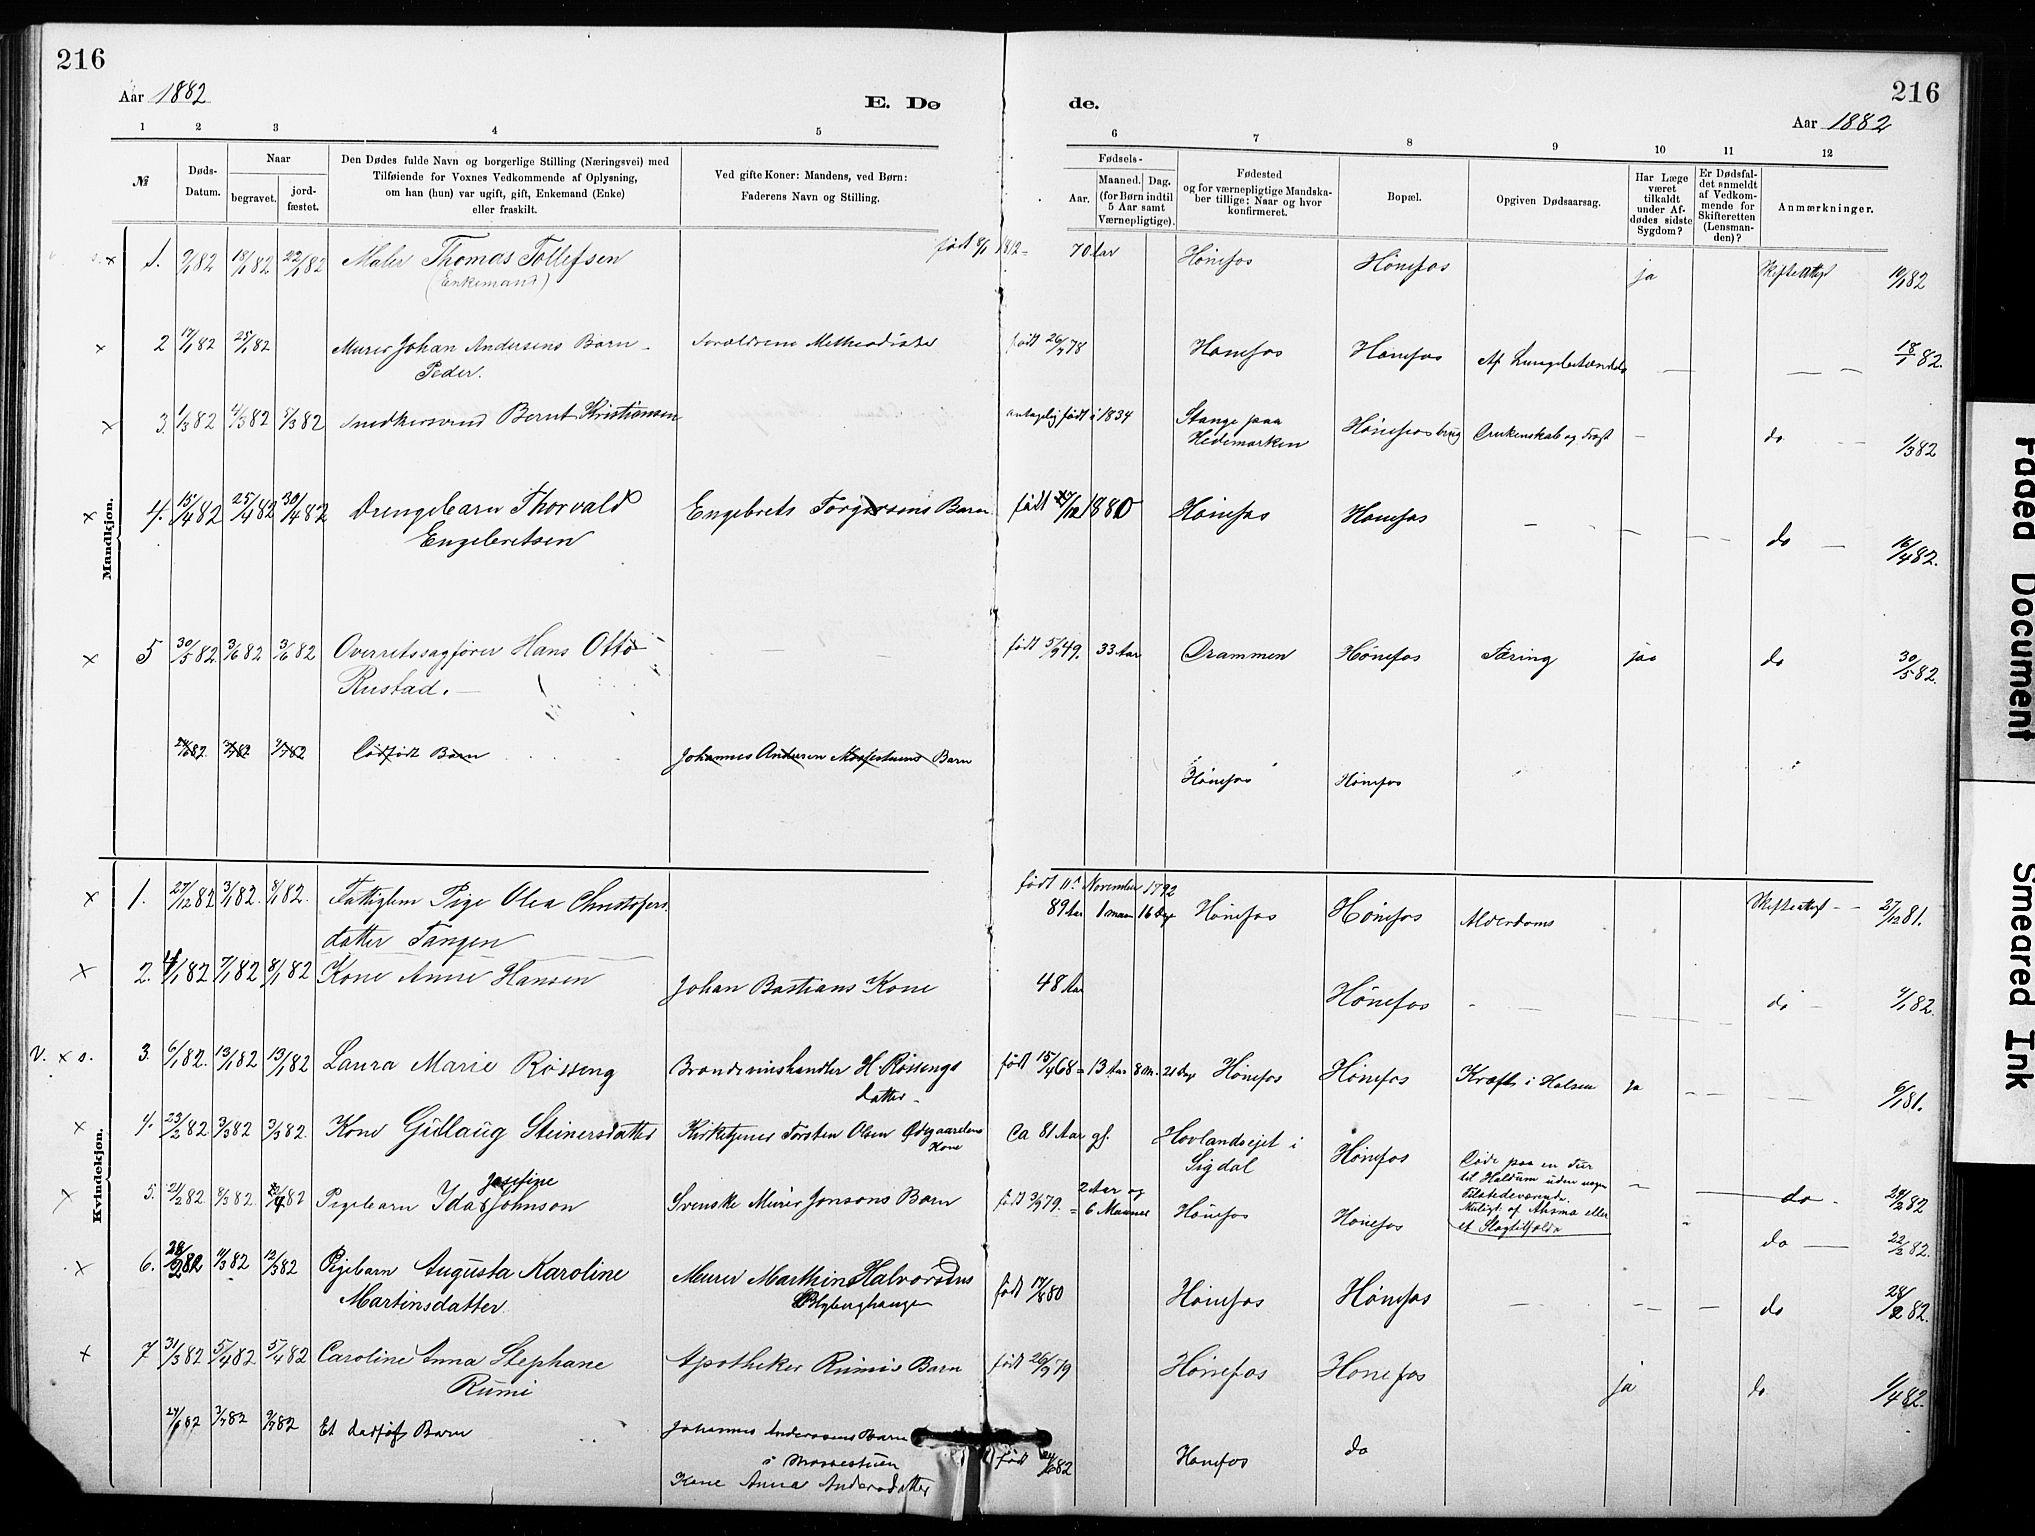 216
216
Aar 1882
E. Dø
de.
Aar 1882
1 2 3 4 5 6 7 8 9 10 11 12
№
Døds-
Datum.
Naar
begravet.
jord-
fæstet.
Den Dødes fulde Navn og borgerlige Stilling (Næringsvei) med
Tilføiende for Voxnes Vedkommende af Oplysning,
om han (hun) var ugift, gift, Enkemand (Enke)
eller fraskilt.
Ved gifte Koner: Mandens, ved Børn:
Faderens Navn og Stilling.
Fødsels-
Aar.
Maaned. Dag.
(for Børn indtil
5 Aar samt
Værnepligtige).
Fødested
og for værnepligtige Mandska-
ber tillige: Naar og hvor
konfirmeret.
Bopæl.
Opgiven Dødsaarsag.
Har Læge
været
tilkaldt
under Af-
dødes sidste
Sygdom?
Er Dødsfal-
det anmeldt
af Vedkom-
mende for
Skifteretten
(Lensman-
den)?
Anmærkninger.
Mandkjøn.
1. 9/1 82 18/1 82 22/1 82 Maler Thomas Tollefsen født 8/1 1812 = 70 Aar Hønefos Hønefos ja Skifteattest 10/1 82
(Enkemand)
× 2 17/1 82 25/1 82 Murer Johan Andersens Barn - Forældrene Methodister født 26/7 78 Hønefos Hønefos Af Lungebetændelse — — — 18/1 82.
Peder.
× 3. 1/3 82 4/3 82 5/3 82 Snedkersvend Bernt Kristiansen antagelig født i 1834 Stange paa Hønefos brug Drukenskab og Frost - do 2/3 82
Hedemarken
× 4. 15/4 82 25/4 82 30/4 82 Drengebarn Thorvald Engebrets Torgersens Barn født /12 1880 Hønefos Hønefos - — do — 16/4 82.
Engebretsen
× 5 30/5 82 3/6 82 3/6 82 Overretssagfører Hans Otto født 5/ 49. 33 Aar Drammen Hønefos Tæring jaa do 30/5 82.
Rustad.
24/6 82 3/7 82 9/7 82 Dødfødt Barn Johannes Andersen Mosestuens Barn
Hønefos Hønefos
Kvindekjøn.
født 11te November 1792
× 1. 27/12 82 3/1 82. 8/1 82. Fattiglem Pige Olea Christofers 89 Aar 1 maan 16 Dage Hønefos Hønefos Alderdoms Skifteattest - 27/12 81.
datter Tangen
× 2. 4/1 82 7/1 82 8/1 82 Kone Anne Hansen Johan Bastians Kone 48 Aar Hønefos - — do - 4/1 82.
V. × s. 3. 6/1 82. 13/1 82 13/1 82 Laura Marie Røsseng Brændevinshandler H. Røssengs født 15/4 68 = 13 Aar 8 M. 21 Dage Hønefos Hønefos Kræft i Halsen ja 6/1 81.
datter -
× 4. 23/2 82 3/3 82 3/3 82. Kone Gudlaug Steinersdatter Kirketjener Torsten Olsen Ødegaardens Kone Ca 81 Aar gl. Hovlandsejet i Sigdal Hønefos
Døde paa en Tur
til Haldum uden nogen
Tilstedeværende.
Muligt af Ahsma eller
et Slagtilfælde
— do. 24/2 82
× 5. 21/2 82 8/3 82 82 Pigebarn Ida Josefine Johnson Svenske Murer Jonsons Barn født 3/9 79. = 2 Aar og 6 Maaneder Hønefos Hønefos do — 22/2 82.
× 6. 28/2 82 11/3 82 12/3 82 Pigebarn Augusta Karoline Murer Marthin Halvorsens født 17/8 80 Hønefos Hønefos — — — do 28/2 82.
Martinsdatter Blyberghaugen
× 7 31/3 82 5/4 82 5/4 82 Caroline Anna Stephane Apotheker Rumis Barn født 26/9 79 Hønefos Hønefos ja do 1/4 82.
Rumi
24/6 82 3/7 82 9/7 82 Et dødfødt Barn Johannes Anderssens Barn født 24/6 82 Hønefos do
i Mosestuen
Kone Anna Andersdatter
Faded Document
Smeared Ink